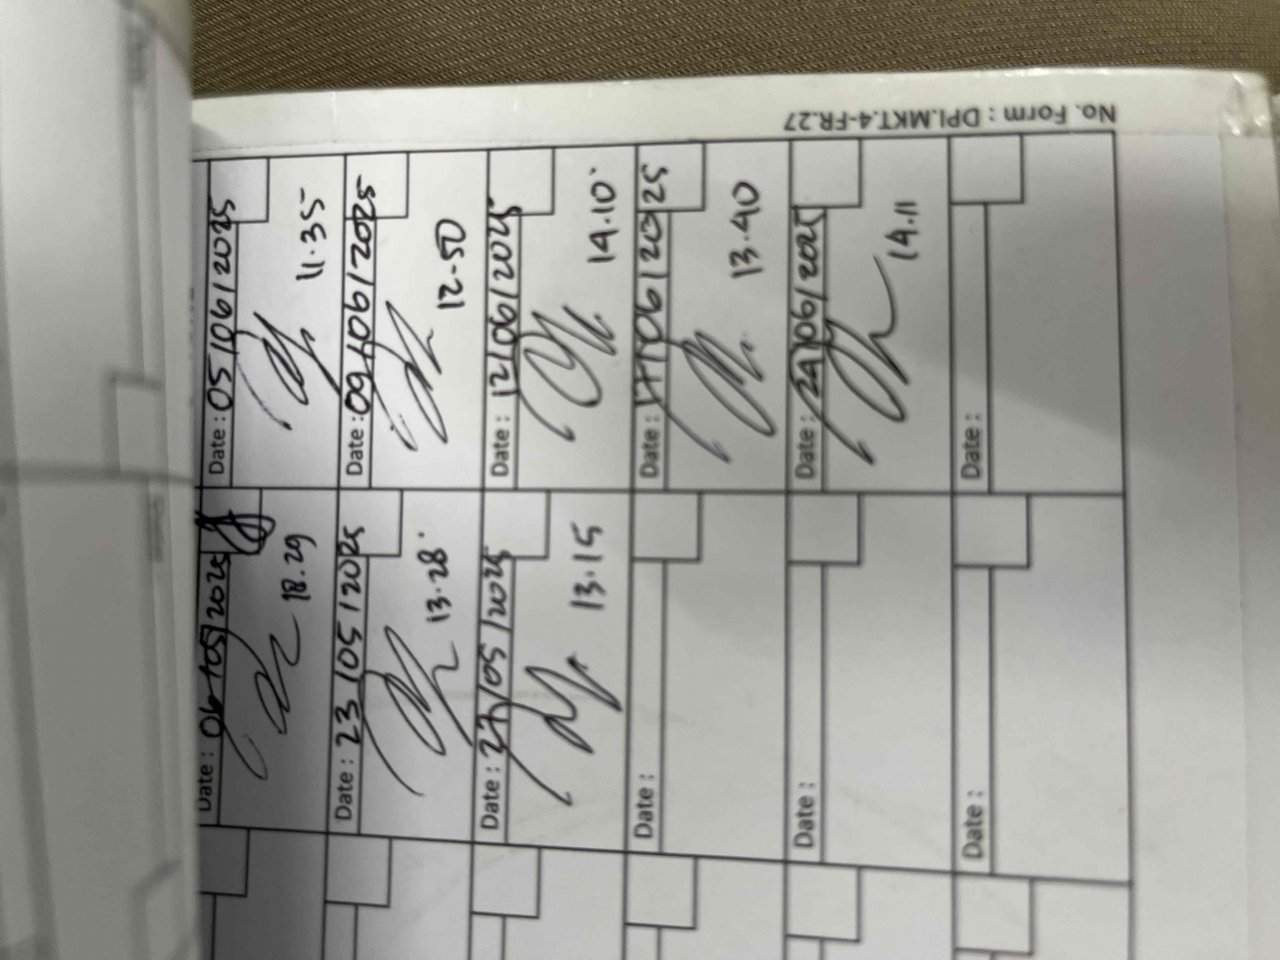 Date : 06/05/2025
18.29
Date : 05/06/2025
11.35
Date : 23/05/2025
13.28
Date : 09/06/2025
12.50
Date : 27/05/2025
13.15
Date : 12/06/2025
14.10
Date :
Date : 17/06/2025
13.40
Date :
Date : 24/06/2025
14.11
Date :
Date :
No. Form : DPI.MKT.4-FR.27